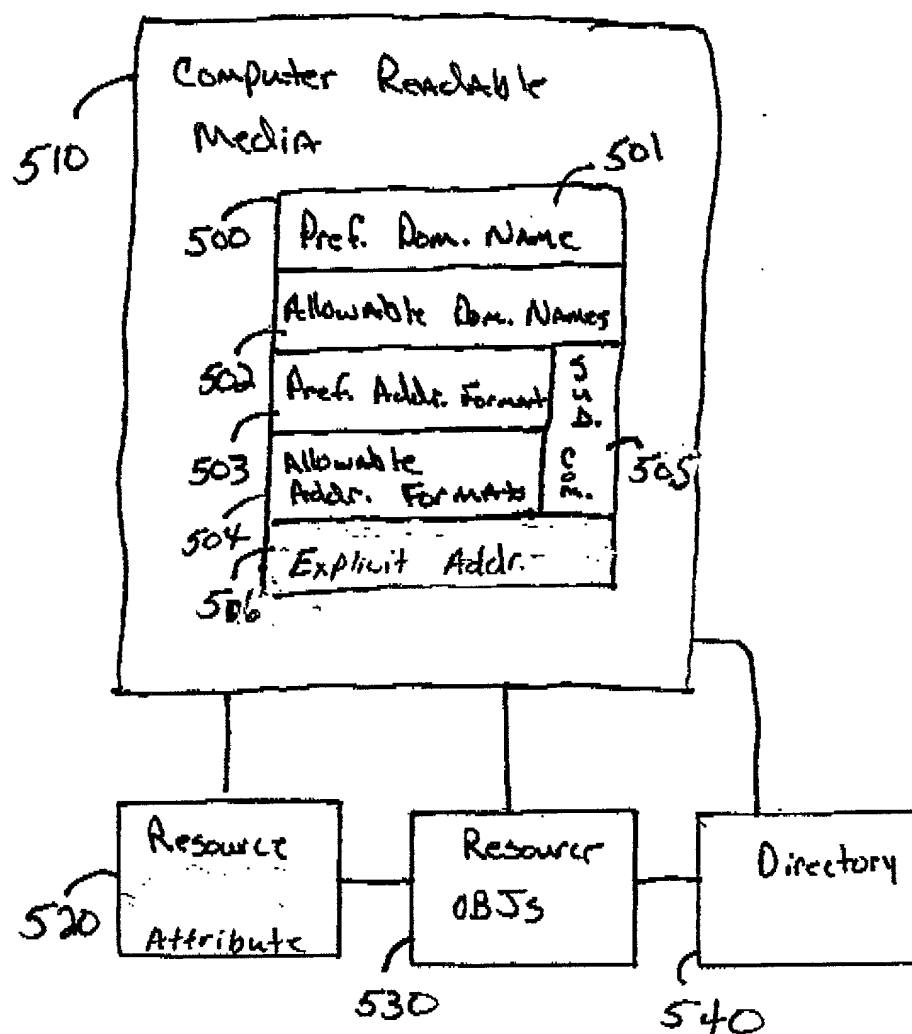 Computer Readable
Media
510
501
500
Pref. Dom. Name
Allowable Dom. Names
502
Pref. Addr. Format
Sub. Com.
503
505
Allowable
Addr. Formats
504
Explicit Addr.
506
Resource
Attribute
520
Resource
OBJs
530
Directory
540